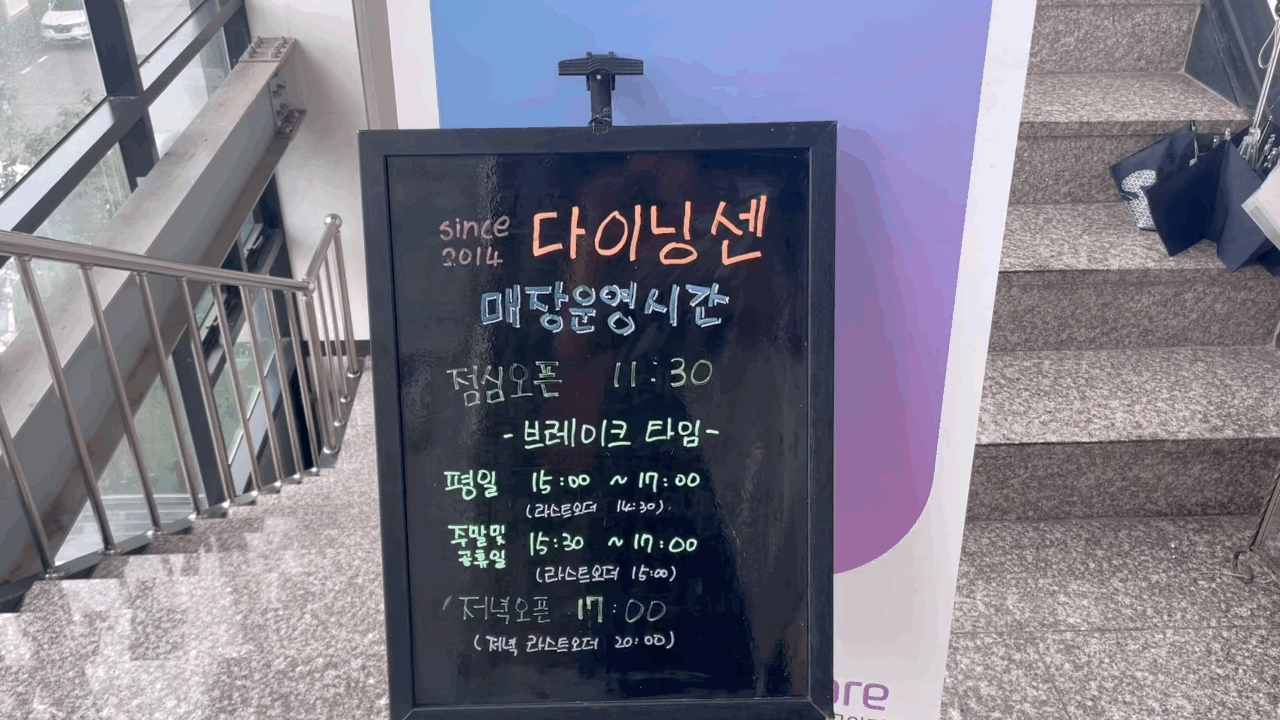 since 2014 다이닝센
매장운영시간
점심오픈 11:30
-브레이크 타임-
평일 15:00 ~ 17:00
(라스트오더 14:30)
주말및 공휴일 15:30 ~ 17:00
(라스트오더 15:00)
저녁오픈 17:00
(저녁 라스트오더 20:00)
ore